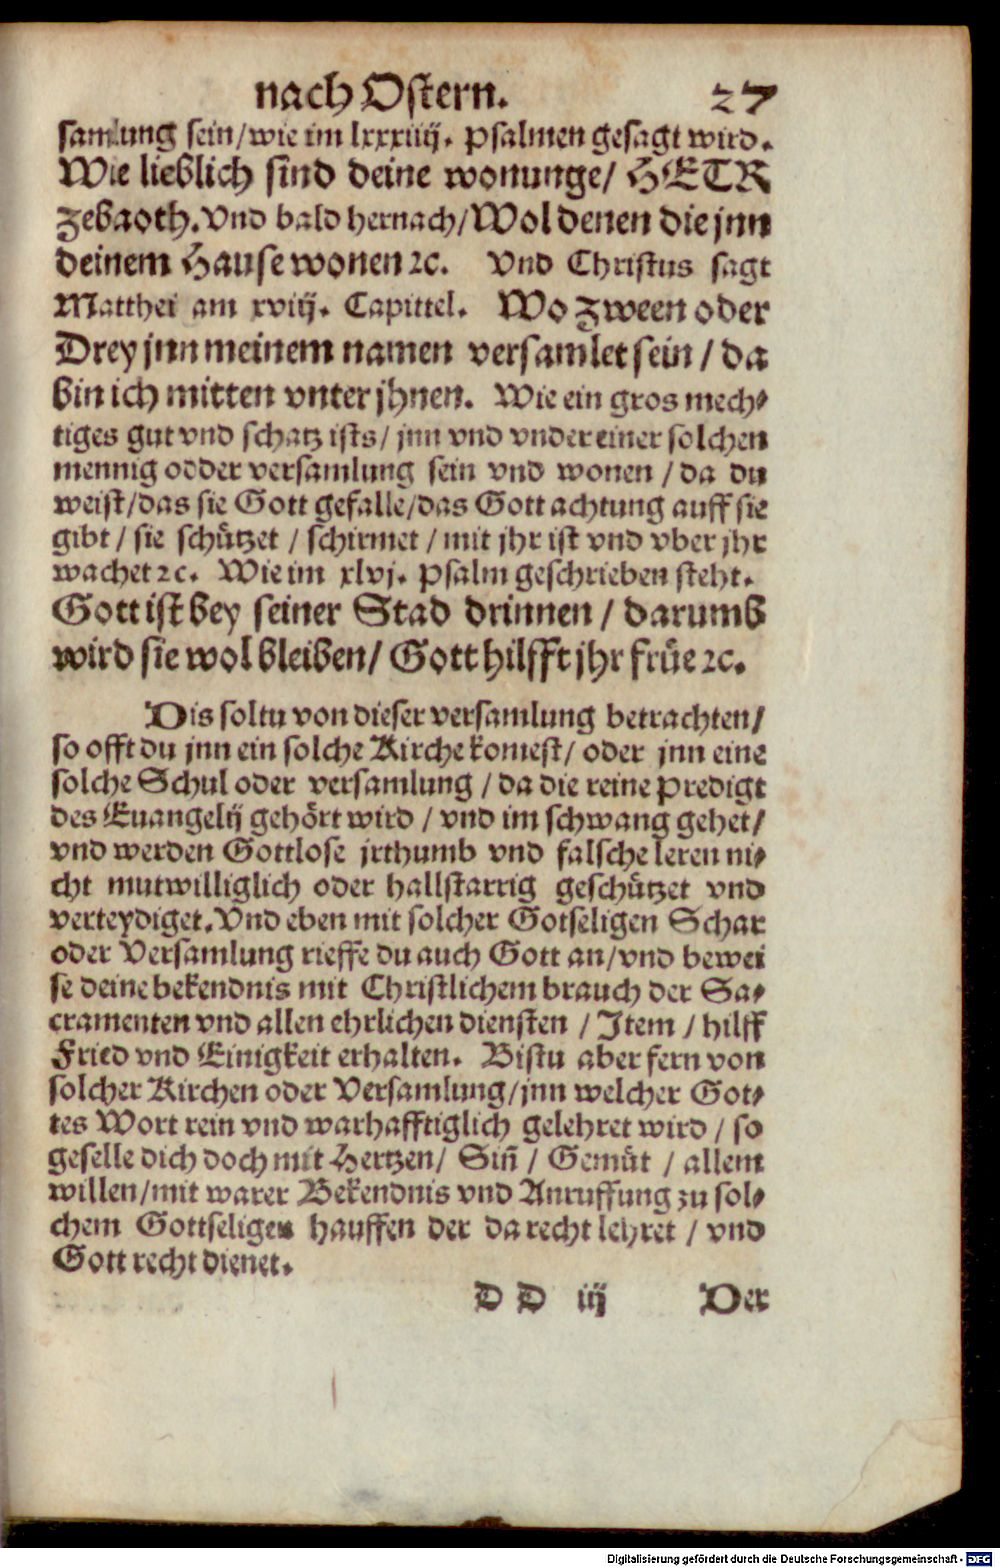 nach Ostern. 27
samlung sein/wie im lxxxiiij. Psalmen gesagt wird.
Wie lieblich sind deine wonunge/ HERR
Zebaoth. Vnd bald hernach/Wol denen die jnn
deinem Hause wonen ꝛc. Vnd Christus sagt
Matthei am xviij. Capittel. Wo Zween oder
Drey jnn meinem namen versamlet sein / da
bin ich mitten vnter jhnen. Wie ein gros mech⸗
tiges gut vnd schatz ists/ jnn vnd vnder einer solchen
mennig odder versamlung sein vnd wonen / da du
weist/das sie Gott gefalle/das Gott achtung auff sie
gibt / sie schützet / schirmet / mit jhr ist vnd vber jhr
wachet ꝛc. Wie im xlvj. Psalm geschrieben steht.
Gott ist bey seiner Stad drinnen / darumb
wird sie wol bleiben/ Gott hilfft jhr früe ꝛc.
Dis soltu von dieser versamlung betrachten/
so offt du jnn ein solche Kirche komest/ oder jnn eine
solche Schul oder versamlung / da die reine Predigt
des Euangelij gehört wird / vnd im schwang gehet/
vnd werden Gottlose jrthumb vnd falsche leren ni⸗
cht mutwilliglich oder hallstarrig geschützet vnd
verteydiget. Vnd eben mit solcher Gotseligen Schar
oder Versamlung rieffe du auch Gott an/vnd bewei
se deine bekendnis mit Christlichem brauch der Sa⸗
cramenten vnd allen ehrlichen diensten / Item / hilff
Fried vnd Einigkeit erhalten. Bistu aber fern von
solcher Kirchen oder Versamlung/jnn welcher Got⸗
tes Wort rein vnd warhafftiglich gelehret wird / so
geselle dich doch mit Hertzen/ Siñ / Gemüt / allem
willen/mit warer Bekendnis vnd Anruffung zu sol⸗
chem Gottseligen hauffen der da recht lehret / vnd
Gott recht dienet.
D D iij Der
Digitalisierung gefördert durch die Deutsche Forschungsgemeinschaft - DFG